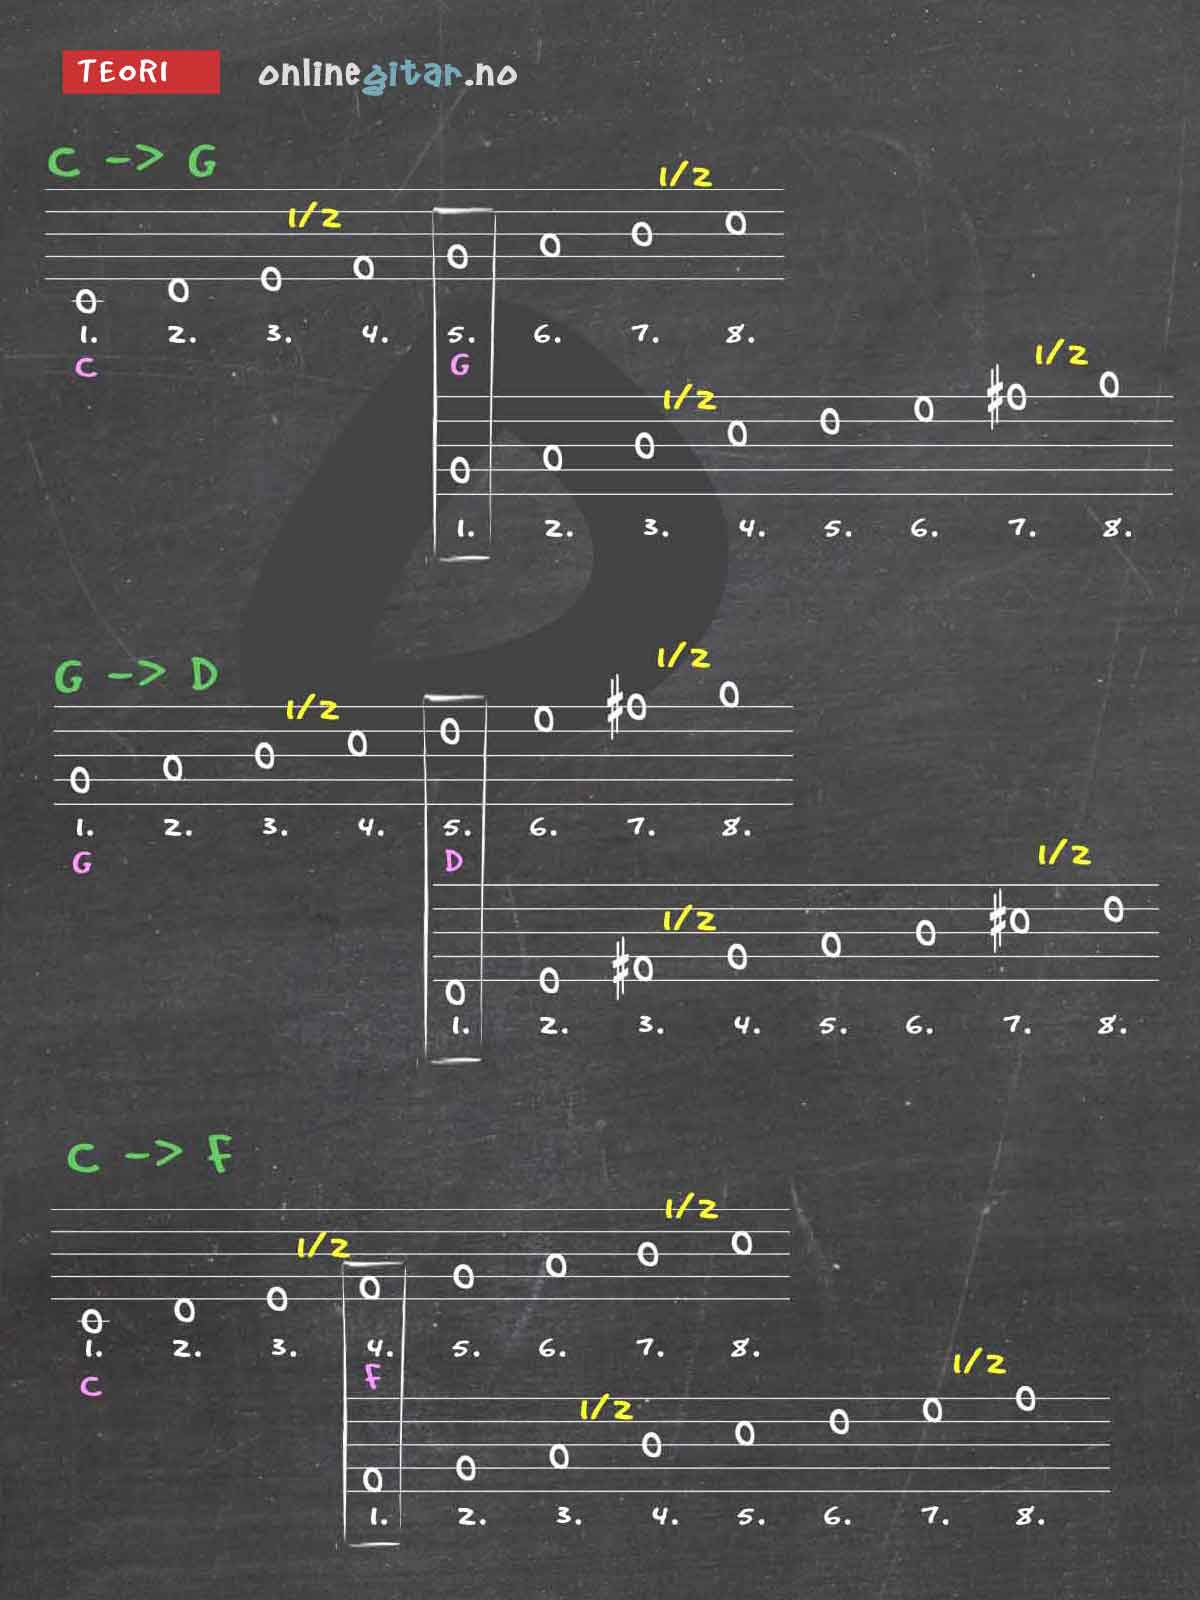 TEORI onlinegitar.no
C -> G
1/2
1/2
1. 2. 3. 4. 5. 6. 7. 8.
C G
1/2
1/2
1. 2. 3. 4. 5. 6. 7. 8.
G -> D
1/2
1/2
1. 2. 3. 4. 5. 6. 7. 8.
G D
1/2
1/2
1. 2. 3. 4. 5. 6. 7. 8.
C -> F
1/2
1/2
1. 2. 3. 4. 5. 6. 7. 8.
C F
1/2
1/2
1. 2. 3. 4. 5. 6. 7. 8.